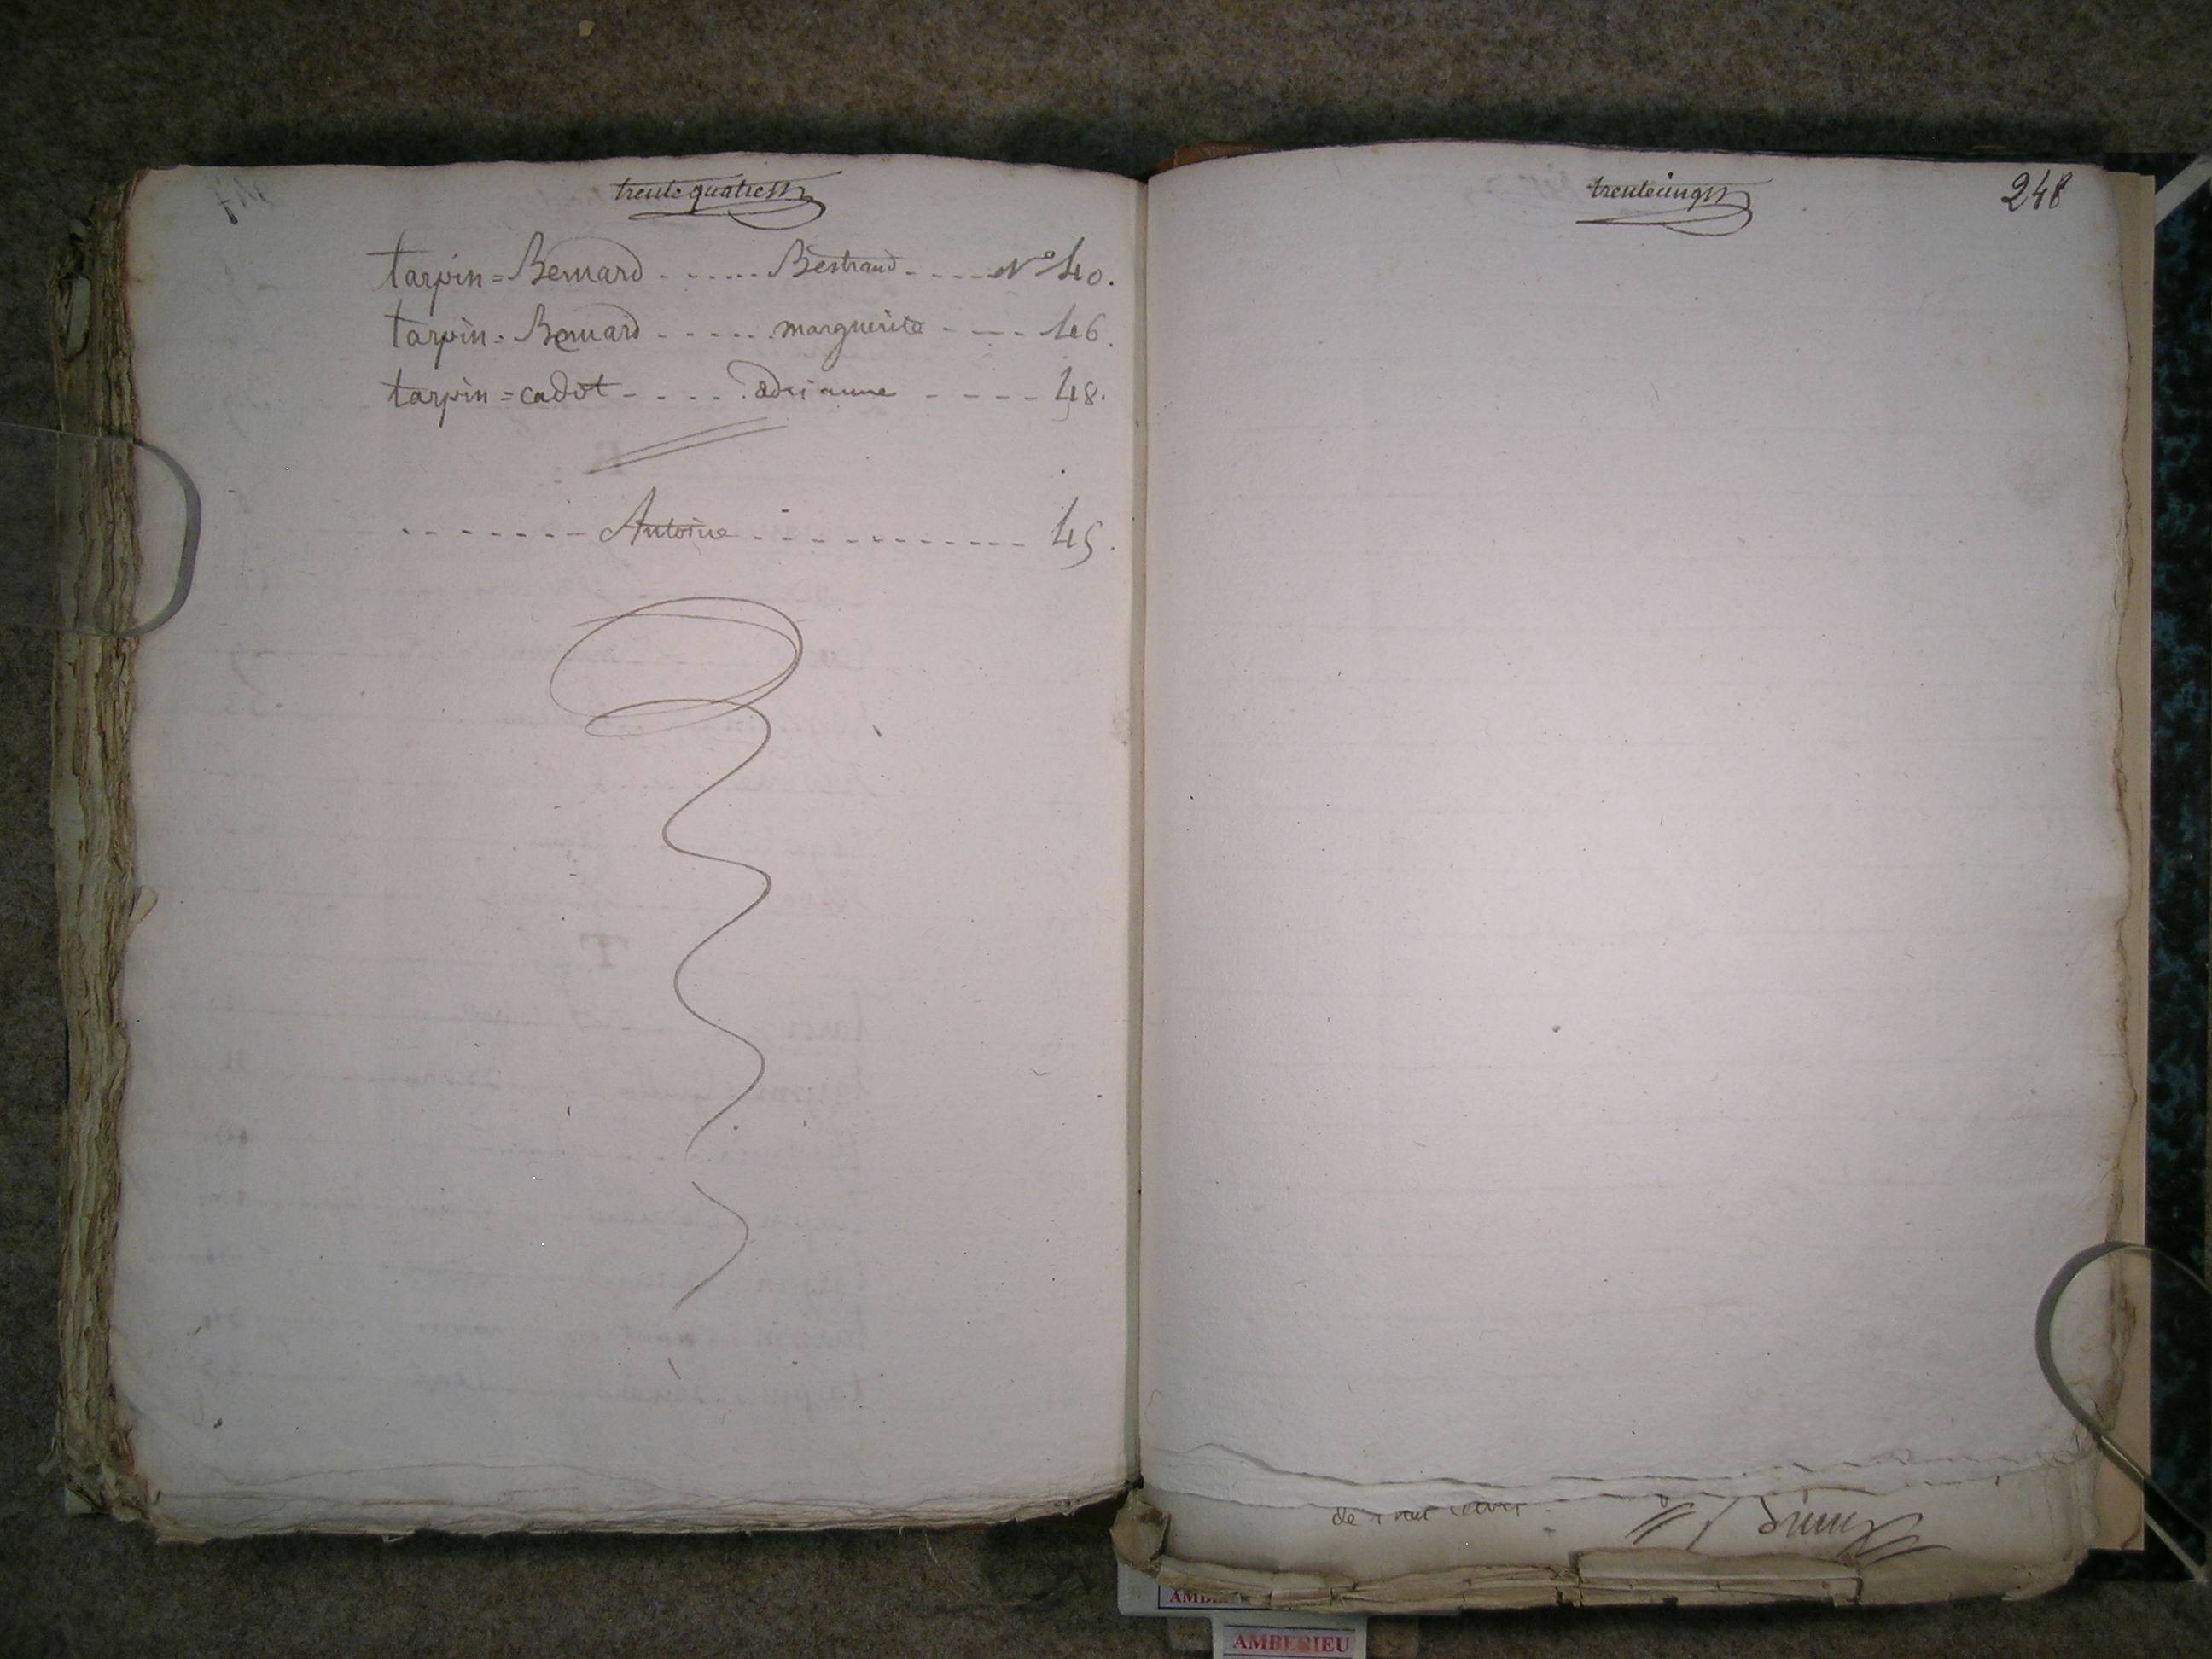 trente quatre
tarpin = Bernard - - - - - - Bertrand - - - - N° 40.
tarpin = Bernard - - - - - - marguerite - - - - 46.
tarpin = cadot - - - - - adrianne - - - - 48.
- - - - - - - - Antoine - - - - - - - - - - - - 45.
trente cinq
248
AMBERIEU